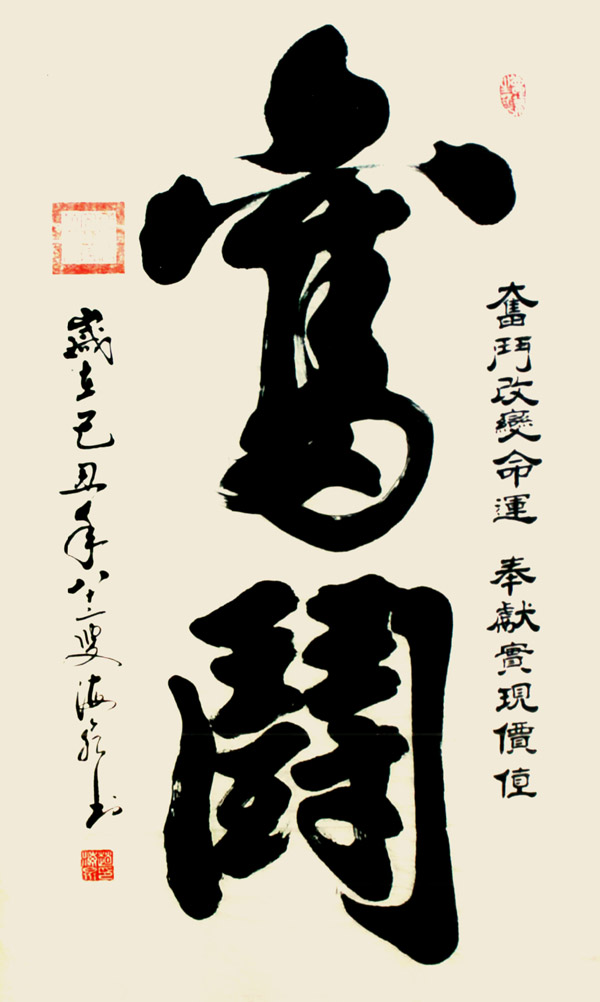 奮鬥改變命運 奉獻實現價值
奮鬪
歲在己丑年八十二叟海书